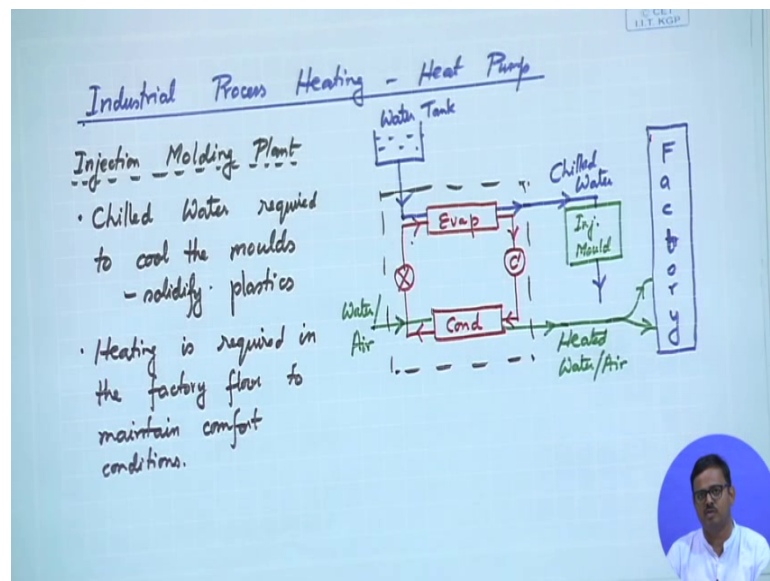 © CET
I.I.T. KGP
Industrial Process Heating - Heat Pump
Injection Molding Plant
• Chilled Water required
to cool the moulds
- solidify plastics
• Heating is required in
the factory floor to
maintain comfort
conditions.
Water Tank
Chilled
Water
Evap
Inj.
Mould
C
Water/
Air
Cond
Heated
Water/Air
Factory